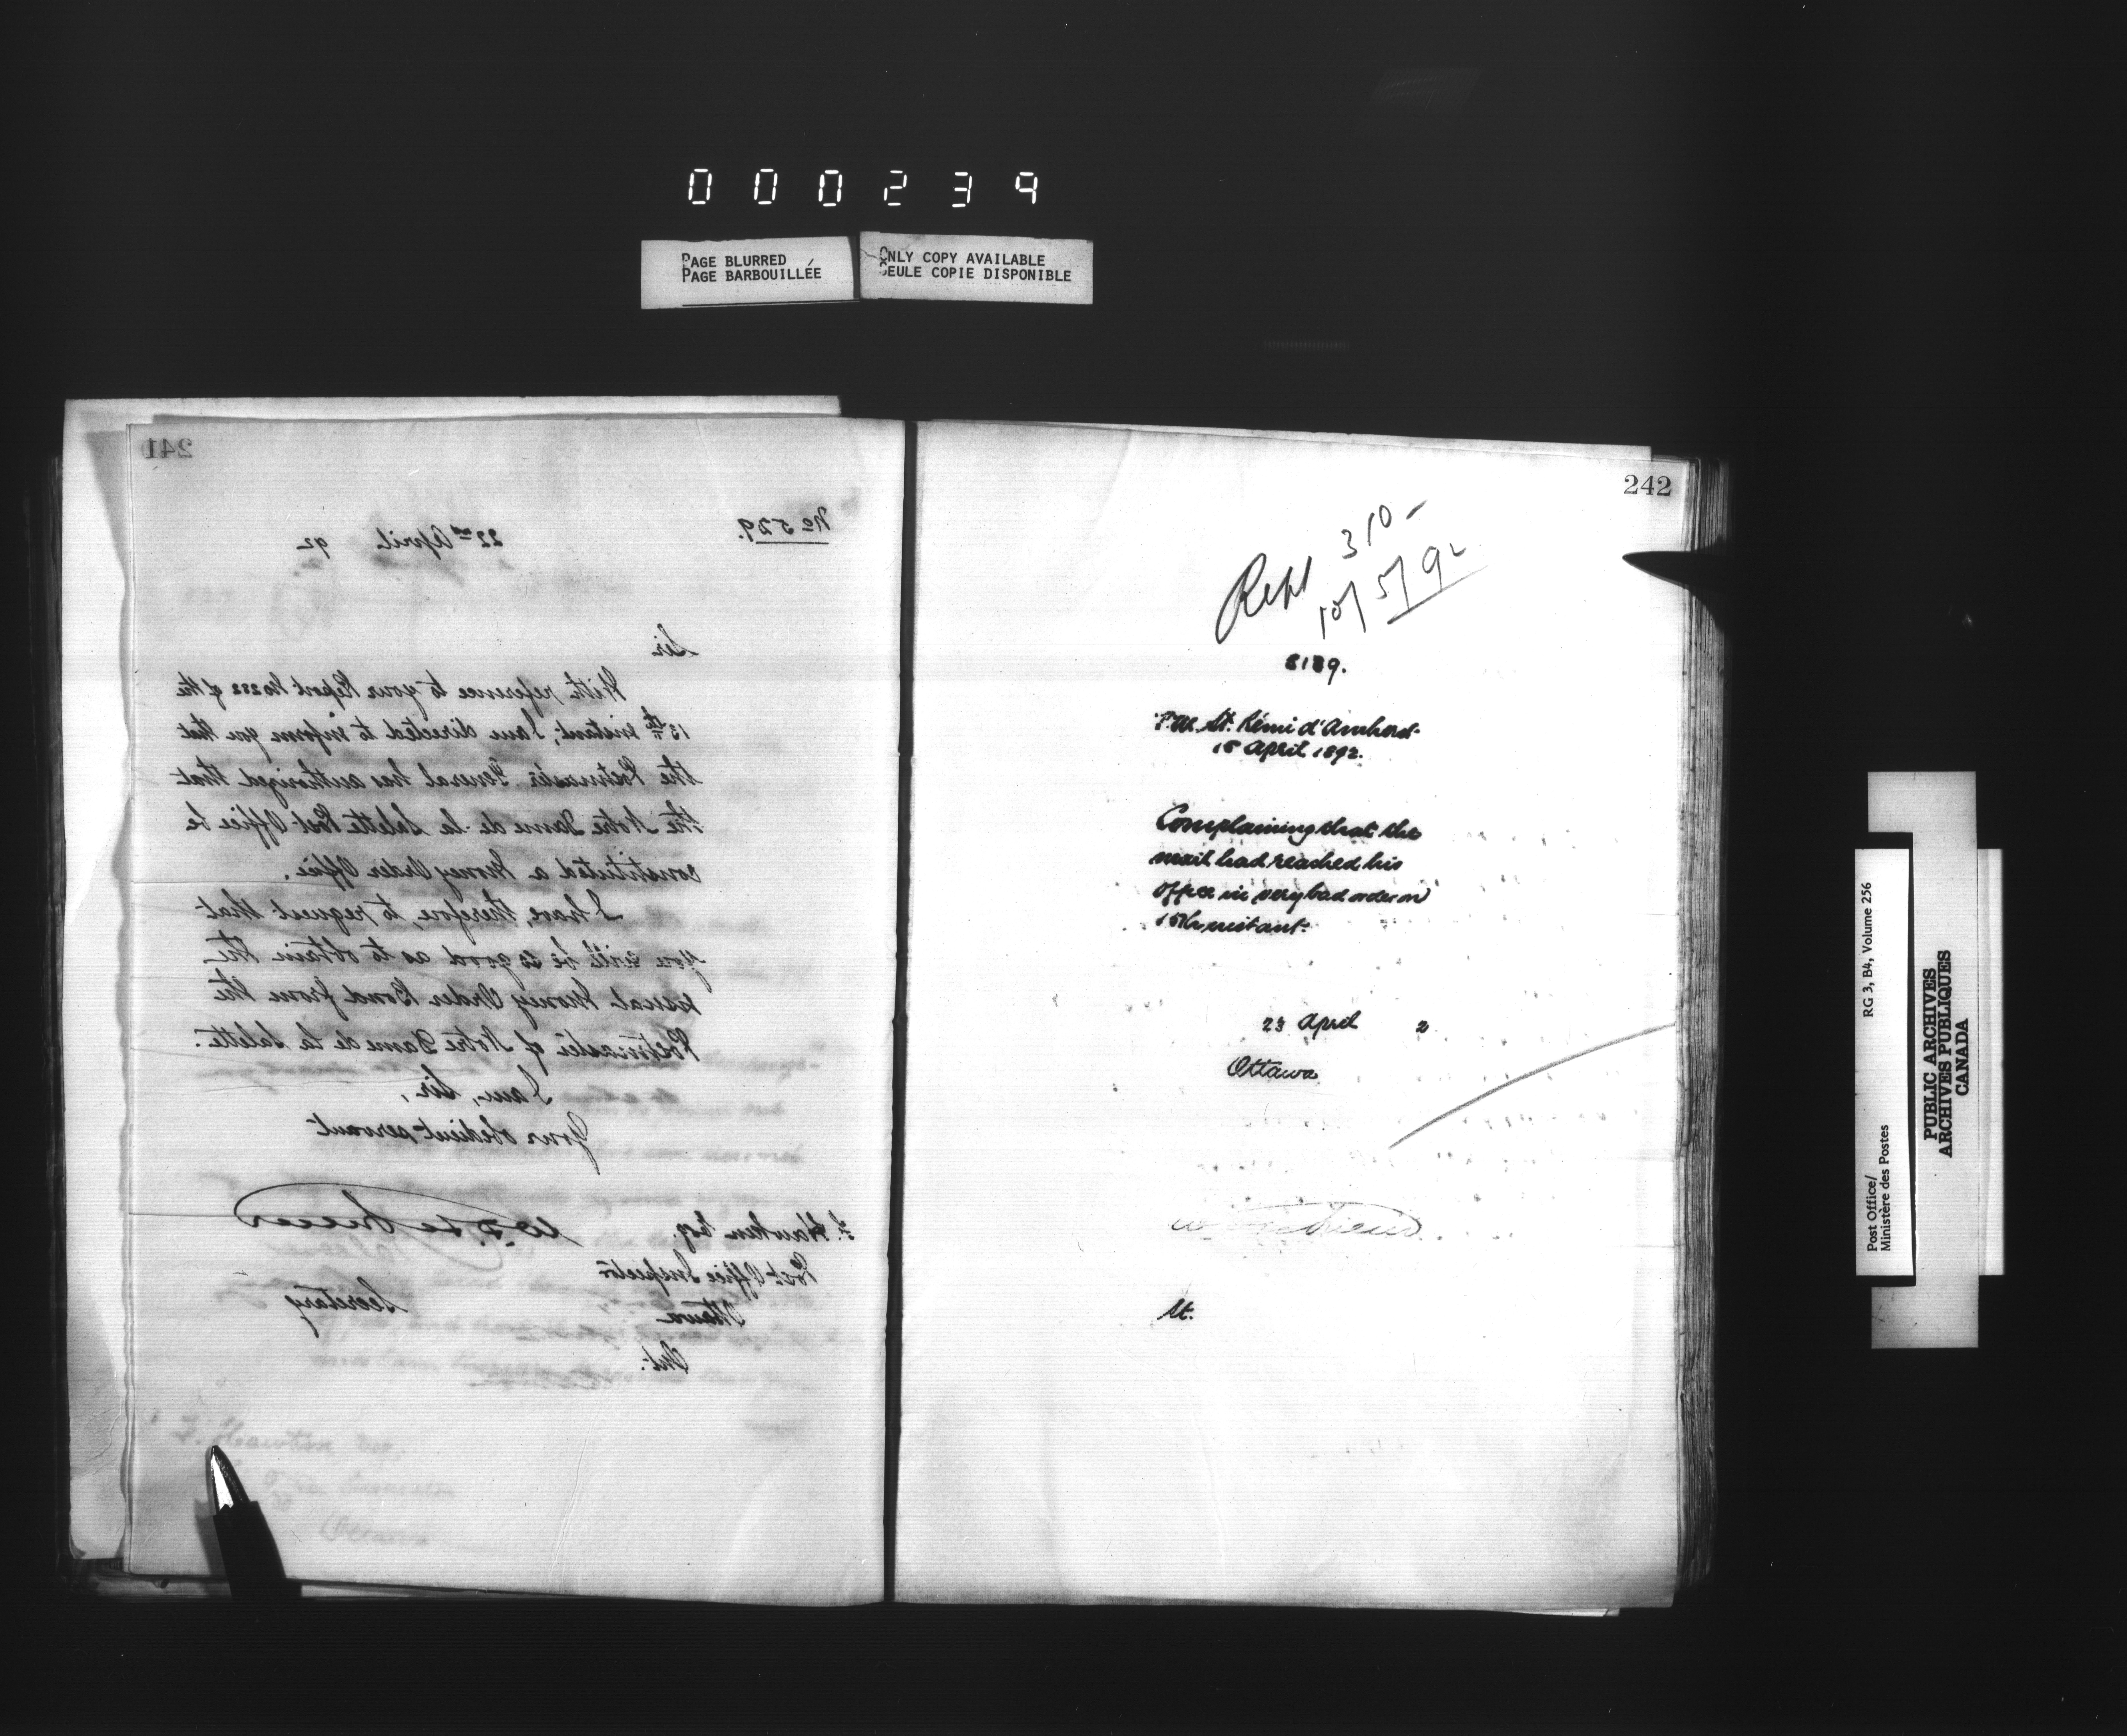 000239
PAGE BLURRED
PAGE BARBOUILLÉE
ONLY COPY AVAILABLE
SEULE COPIE DISPONIBLE
241
No 529.
22nd April 92
Sir
With reference to your Report No 222 of the
13th instant, I am directed to inform you that
the Postmaster General has authorized that
the Notre Dame de la Salette Post Office be
constituted a Money Order Office.
I have, therefore, to request that
you will be so good as to obtain the
usual Money Order Bond from the
Postmaster of Notre Dame de la Salette.
I am, Sir,
Your obedient servant
W. D. LeSueur
Secretary
F. Hawken Esq.
Post Office Inspector
Ottawa
Ont.
F. Hawken Esq.
Ottawa
242
Rept 310-
10/5/92
8139.
P.M. St. Rémi d'Amherst
15 April 1892.
Complaining that the
mail had reached his
office in very bad order on
15th instant.
23 April 2
Ottawa
St.
Post Office/
Ministère des Postes
RG 3, B4, Volume 256
PUBLIC ARCHIVES
ARCHIVES PUBLIQUES
CANADA